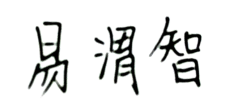 易渭智